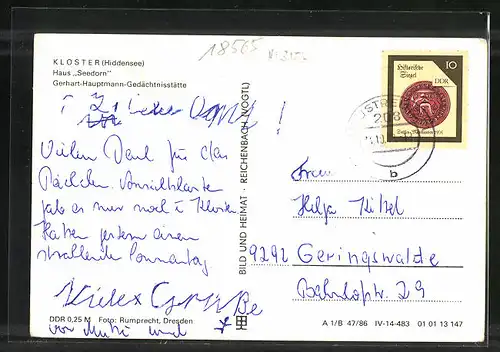 18565
KLOSTER (Hiddensee)
Haus „Seedorn"
Gerhart-Hauptmann-Gedächtnisstätte
10
Historische
Siegel
DDR
208
b
Vielen Dank für das
Päckchen. Ansichtskarte
gab es nur noch i Kloster
Hatten gestern einen
strahlenden Sonnentag.
Viele
von Mutti und
BILD UND HEIMAT · REICHENBACH (VOGTL)
Frau
Helga Kittel
9292 Geringswalde
Bahnhofstr. 29
DDR 0,25 M Foto: Rumprecht, Dresden
A 1/B 47/86 IV-14-483 01 01 13 147